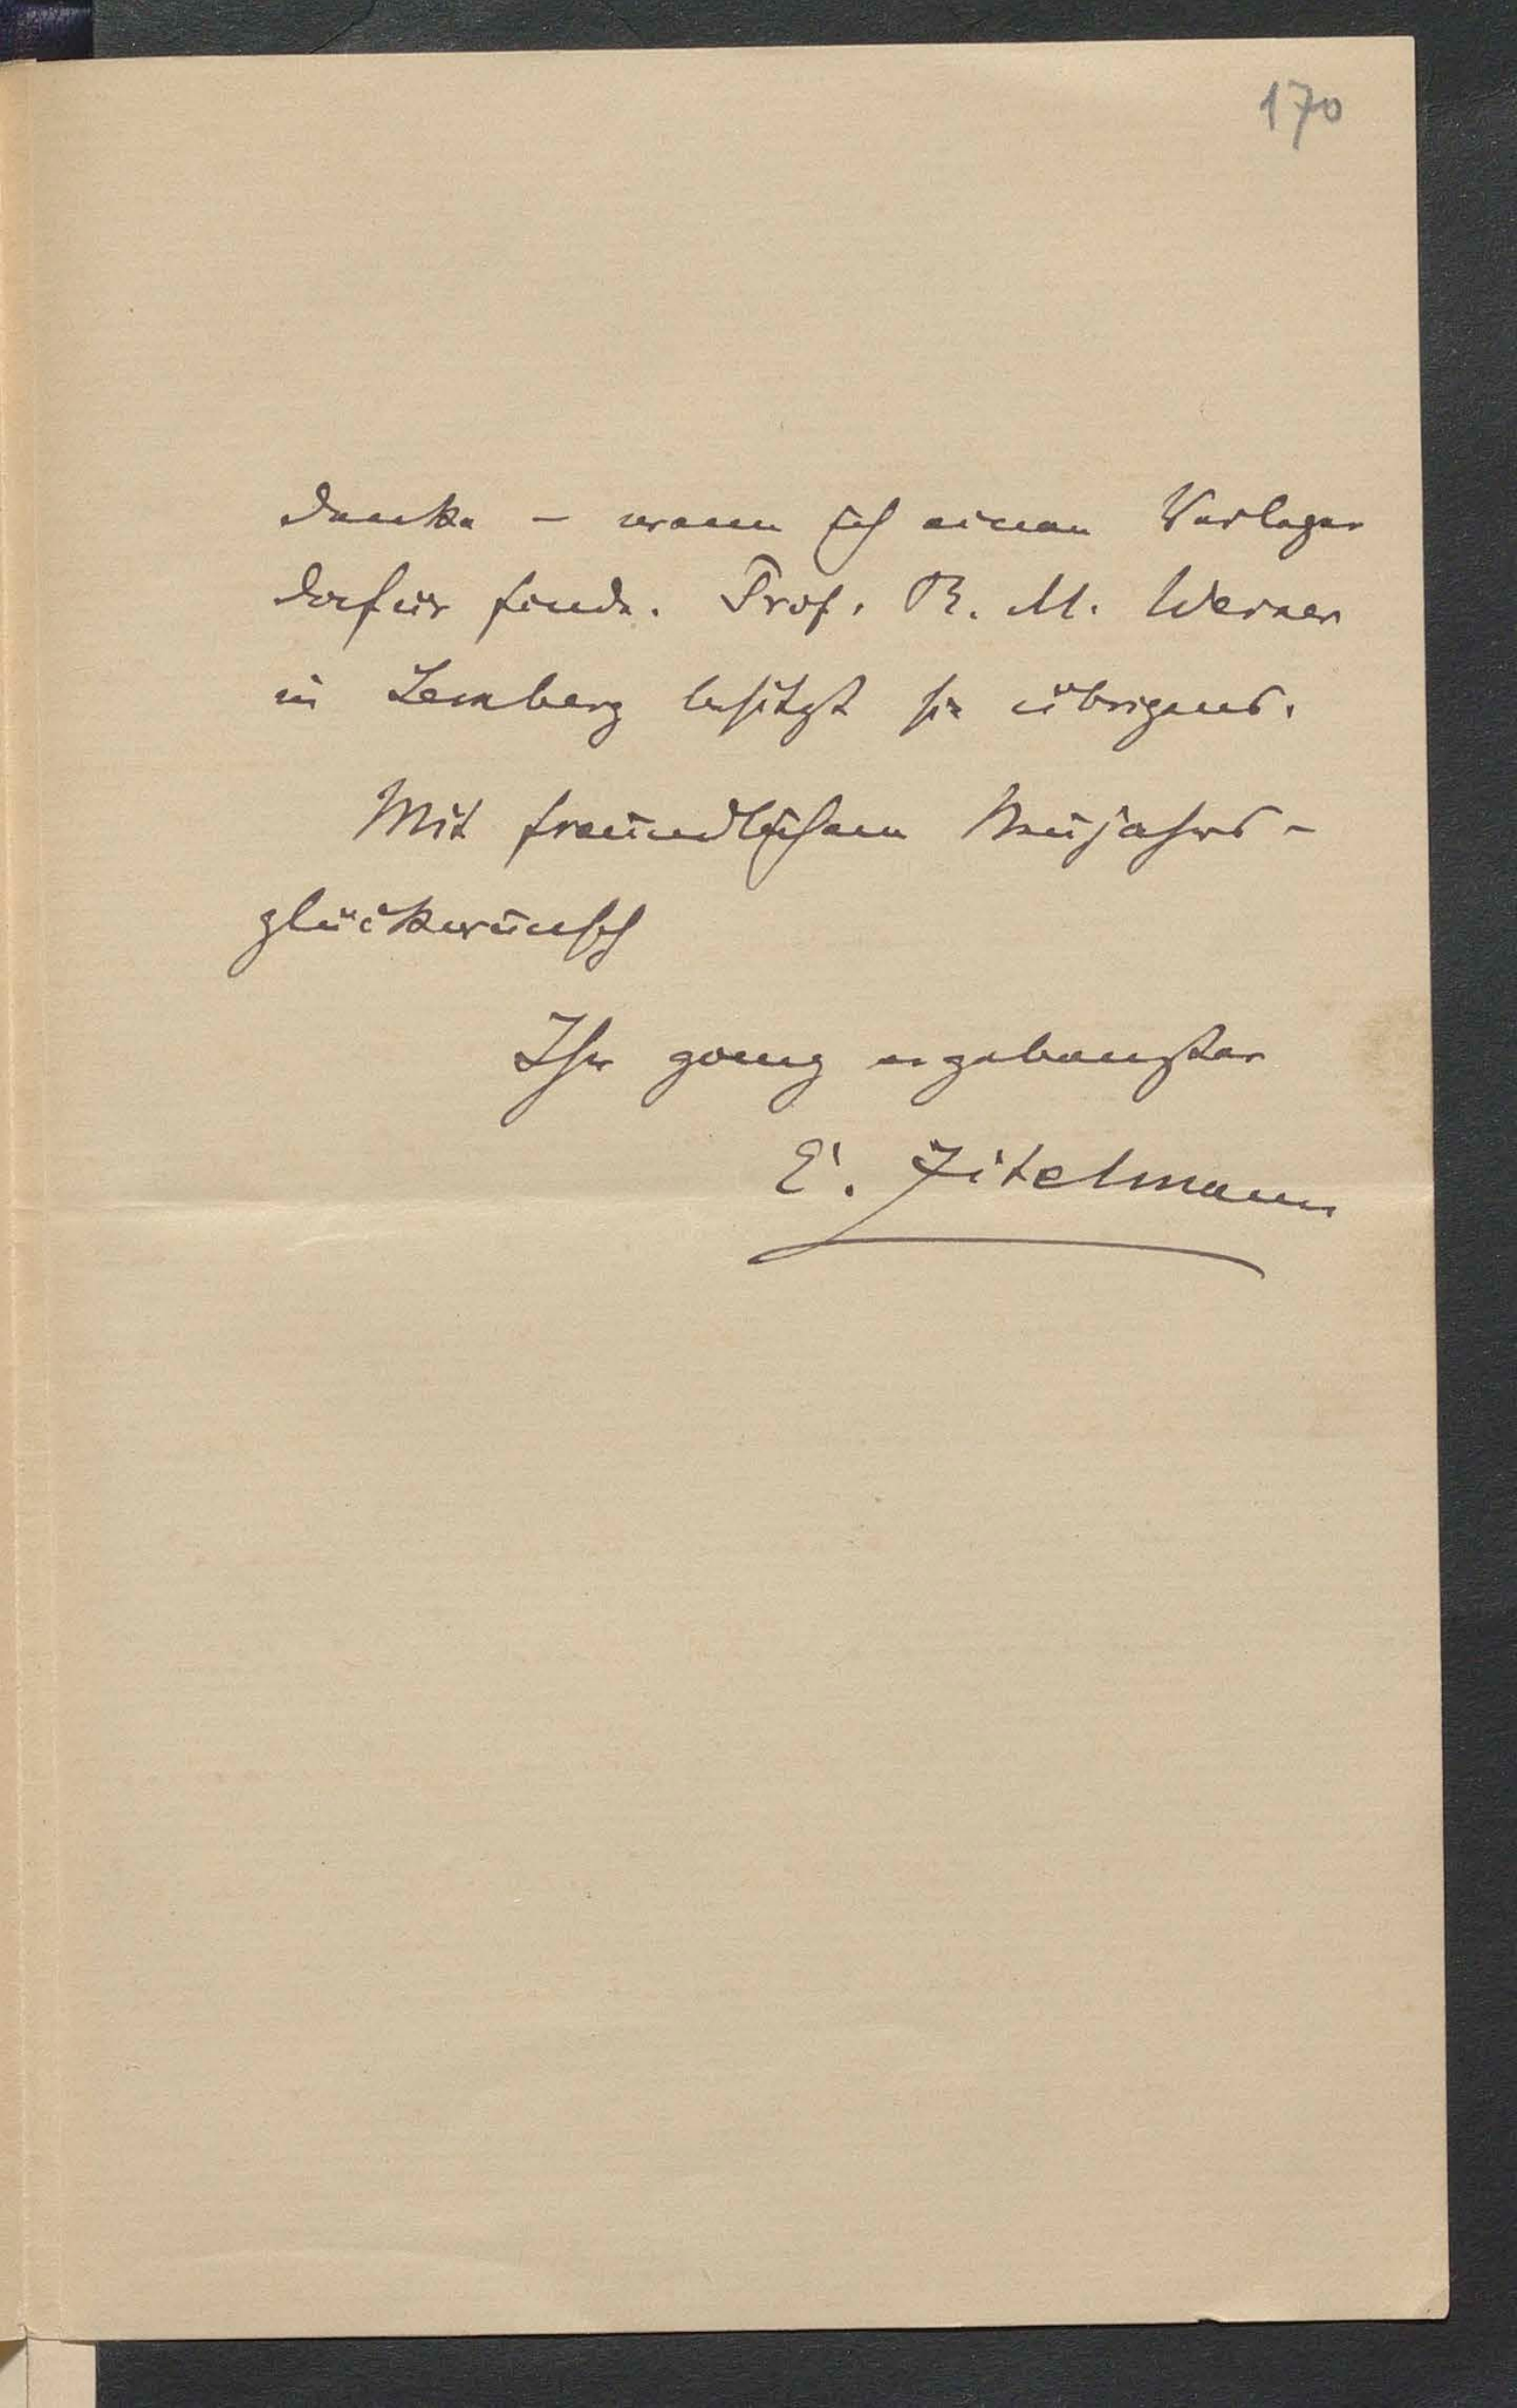 170
denke – wenn ich einen Verleger
dafür finde. Prof. R. M. Werner
in Lemberg besitzt sie übrigens.
Mit freundlichem Neujahrs-
glückwunsch
Ihr ganz ergebenster
E. Zitelmann